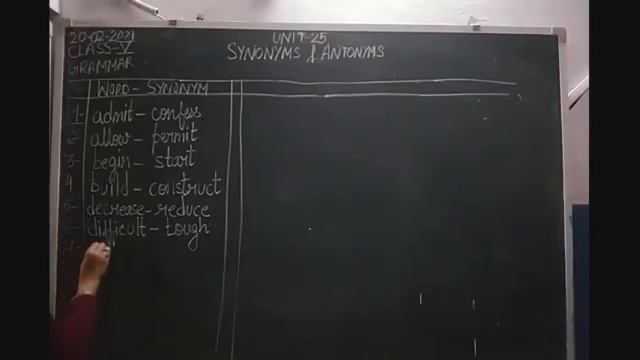 20-02-2021
CLASS-V
GRAMMAR
UNIT-25
SYNONYMS & ANTONYMS
WORD - SYNONYM
1- admit - confess
2- allow - permit
3- begin - start
4 build - construct
5- decrease - reduce
6- difficult - tough
7-